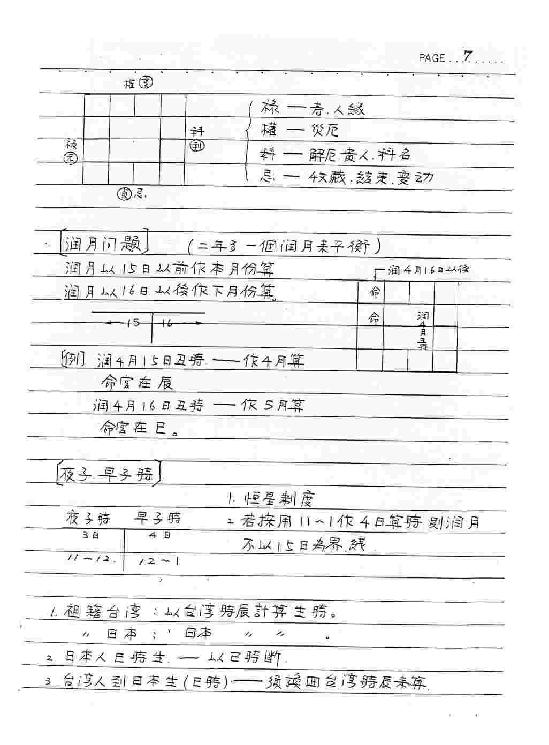 PAGE...7.....
权亥
祿 — 寿.人緣
權 — 災厄
科 — 解厄.貴人.科名
忌 — 收藏.結束.变动
科
忌
[润月问題] (二年多一個润月来平衡)
润月以15日以前作本月份算
润月以16日以後作下月份算。
润4月16日以後
命
命 润4月
15 16
[例] 润4月15日丑時 — 作4月算
命宫在辰
润4月16日丑時 — 作5月算
命宫在巳。
[夜子.早子時]
1. 恒星制度
夜子時 早子時
2. 若採用11~1作4日算時則润月
3日 4日
不以15日為界線
11~12. 12~1
1. 祖籍台湾:以台湾時辰計算生時。
〃 日本:〃日本 〃 〃 。
2. 日本人巳時生. — 以巳時断.
3. 台湾人到日本生(巳時) — 後換回台湾時辰来算.